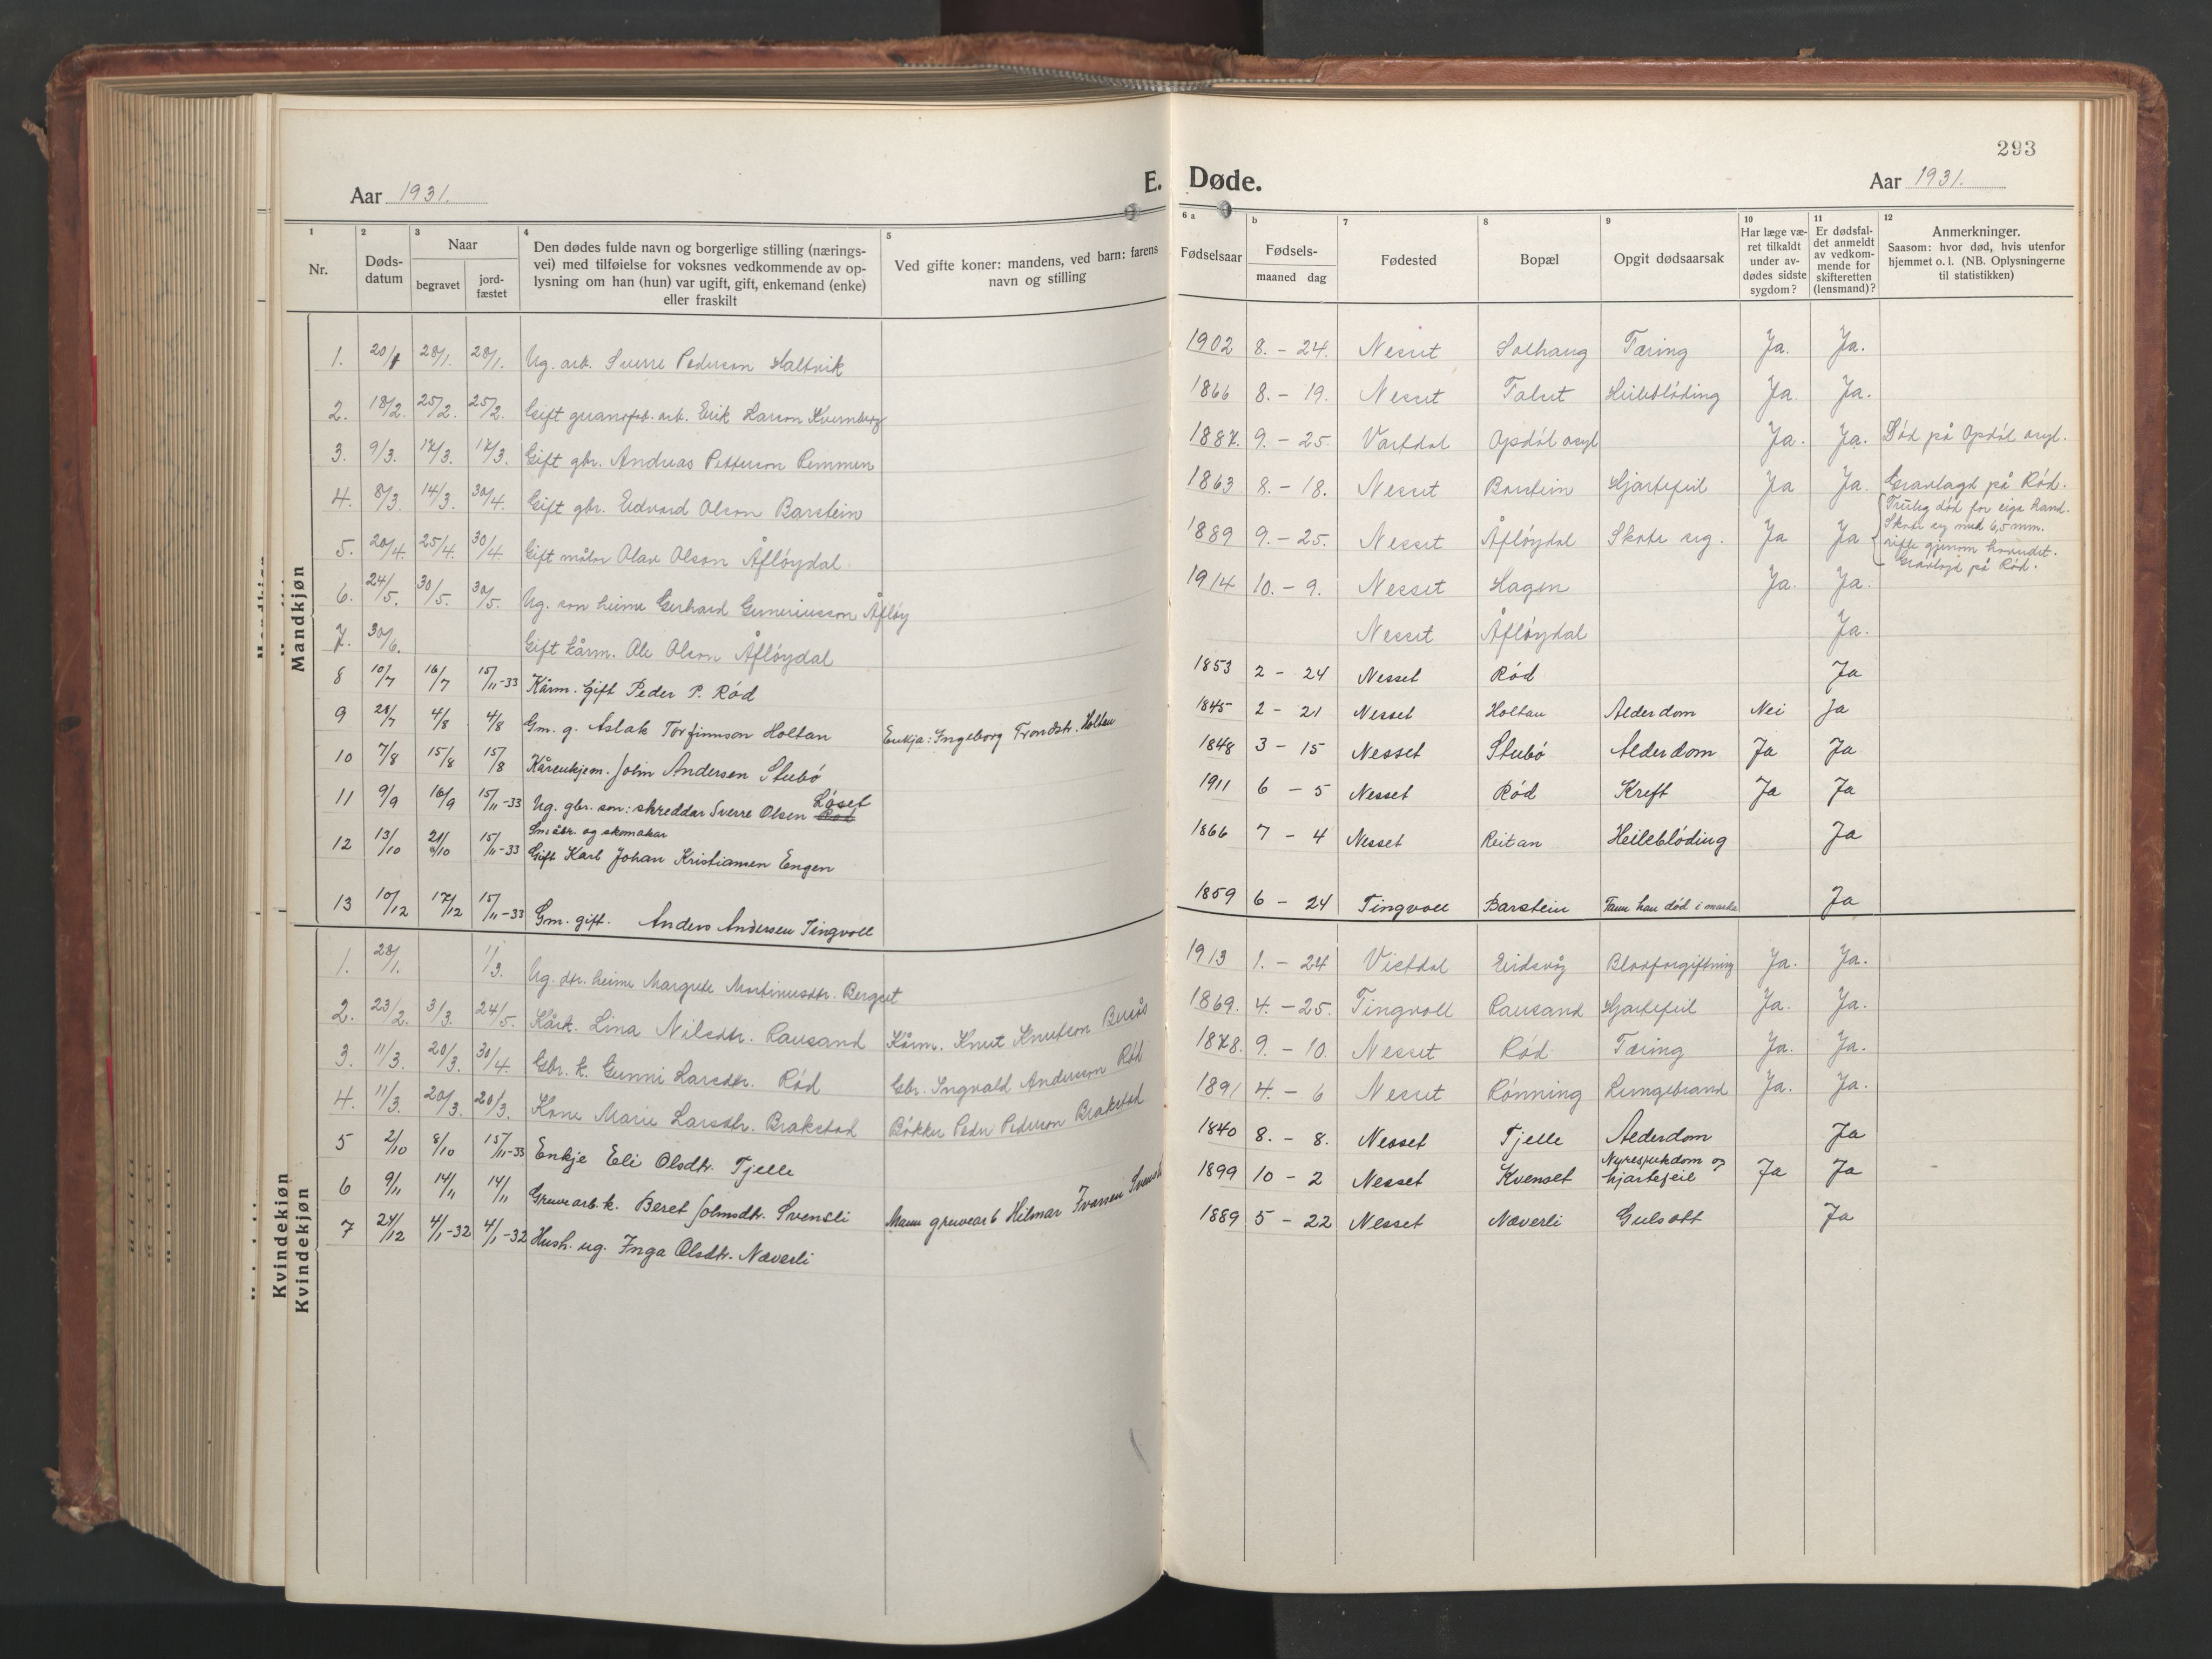 293
Aar 1931.
E. Døde.
Aar 1931.
1 Nr.
2 Døds-datum
3 Naar
begravet
jord-fæstet
4 Den dødes fulde navn og borgerlige stilling (nærings-
vei) med tilføielse for voksnes vedkommende av op-
lysning om han (hun) var ugift, gift, enkemand (enke)
eller fraskilt
5 Ved gifte koner: mandens, ved barn: farens
navn og stilling
6 a Fødselsaar
b Fødsels-
maaned dag
7 Fødested
8 Bopæl
9 Opgit dødsaarsak
10 Har læge væ-
ret tilkaldt
under av-
dødes sidste
sygdom?
11 Er dødsfal-
det anmeldt
av vedkom-
mende for
skifteretten
(lensmand)?
12 Anmerkninger.
Saasom: hvor død, hvis utenfor
hjemmet o. l. (NB. Oplysningerne
til statistikken)
Mandkjøn
1. 20/1 28/1. 28/1. Ug. arb. Sverre Pederson Haltvik 1902 8. - 24. Nesset Solhaug Tæring Ja. Ja.
2. 18/2. 25/2. 25/2. Gift guanofab. arb. Erik Larson Kvernberg 1866 8. - 19. Nesset Talset Heileblöding Ja. Ja.
3. 9/3. 17/3. 17/3. Gift gbr. Andreas Petterson Remmen 1887. 9. - 25 Vartdal Opdöl asyl Ja. Ja. Död på Opdöl asyl.
4. 8/3. 14/3. 30/4. Gift gbr. Edvard Olson Barstein 1863 8. - 18. Nesset Barstein Hjartefeil Ja Ja. Gravlagd på Röd.
5. 20/4. 25/4. 30/4. Gift målar Olav Olson Åflöydal 1889 9. - 25. Nesset Åflöydal Skote seg. Ja Ja Truleg död for eiga hand.
Skote seg med 6,5 mm.
rifle gjenom hovudet.
Gravlagd på Röd.
6. 24/5. 30/5. 30/5. Ug. son heime Gerhard Gumeriusson Åflöy 1914 10. - 9. Nesset Hagen Ja. Ja.
7. 30/6. Gift kårm. Ole Olson Åflöydal Nesset Åflöydal Ja.
8 10/7 16/7 15/11-33 Kårm. Gift Peder P. Röd 1853 2 - 24 Nesset Röd Ja
9 28/7 4/8 4/8 Gm. g. Aslak Torfinnson Holtan Enkja: Ingeborg Trondstr. Holtan 1845 2 - 21 Nesset Holtan Alderdom Nei Ja
10 7/8 15/8 15/8 Kårenkjem. John Andersen Stubö 1848 3 - 15 Nesset Stubö Alderdom Ja Ja
11 9/9 16/9 15/11-33 Ug. gbr. son: skreddar Sverre Olsen Röd Löset 1911 6 - 5 Nesset Röd Kreft Ja Ja
12 13/10 21/10 15/11-33 Småbr. og skomakar
Gift Karl Johan Kristiansen Engen 1866 7 - 4 Nesset Reitan Heileblöding Ja
13 10/12 17/12 15/11-33 Gm. gift. Anders Andersen Tingvoll 1859 6 - 24 Tingvoll Barstein Fann han död i Ja
Kvindekjøn
Kvindekjøn
1. 28/1. 1/3. Ug. dtr. heime Margrete Martinusdtr. Bergset 1913 1. - 24 Vistdal Eidsvåg Blodforgiftning Ja. Ja.
2. 23/2. 3/3. 24/5. Kårk. Lina Nilsdtr. Rausand Kårm. Knut Knutson Berås 1869. 4. - 25. Tingvoll Rausand Hjartefeil Ja. Ja.
3. 11/3. 20/3. 30/4. Gbr. k. Gunni Larsdtr. Röd Gbr. Ingvald Anderson Röd 1878. 9. - 10. Nesset Röd Tæring Ja. Ja.
4. 11/3. 20/3. 20/3. Kone Marie Larsdtr. Brakstad Bökker Peder Pederson Brakstad 1891 4. - 6 Nesset Rönning Lungebrand Ja. Ja.
5 2/10 8/10 15/11-33 Enkje Eli Olsdtr. Tjelle 1840 8. - 8. Nesset Tjelle Alderdom Ja
6 9/11 14/11 14/11 Gruvearb. k. Beret Johnsdtr. Svensli Mann gruvearb Hilmar Ivarsen 1899 10 - 2 Nesset Kvenset Nyresjukdom og
hjartefeil Ja Ja
7 24/12 4/1-32 4/1-32 Hush. ug. Inga Olsdtr. Næverli 1889 5 - 22 Nesset Næverli Gulsott Ja